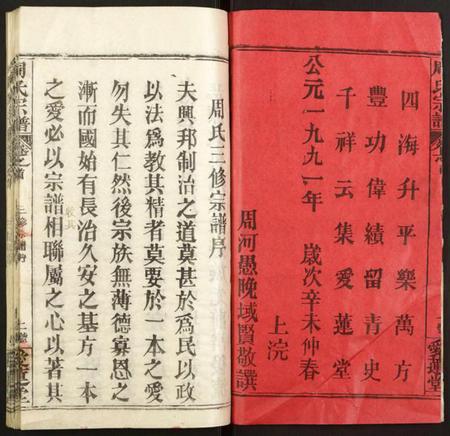 周氏宗譜
四海升平樂萬方
豐功偉績留青史
千祥云集愛蓮堂
公元一九九一年 歲次辛未仲春
上浣
周河愚晚域賢敬譔
愛蓮堂
周氏三修宗譜序
夫興邦制治之道莫甚於為民以政
以法為教其精者莫要於一本之愛
勿失其仁然後宗族無薄德寡恩之
漸而國始有長治久安之基方一本
之愛必以宗譜相聯屬之心以著其
周氏宗譜
卷之首